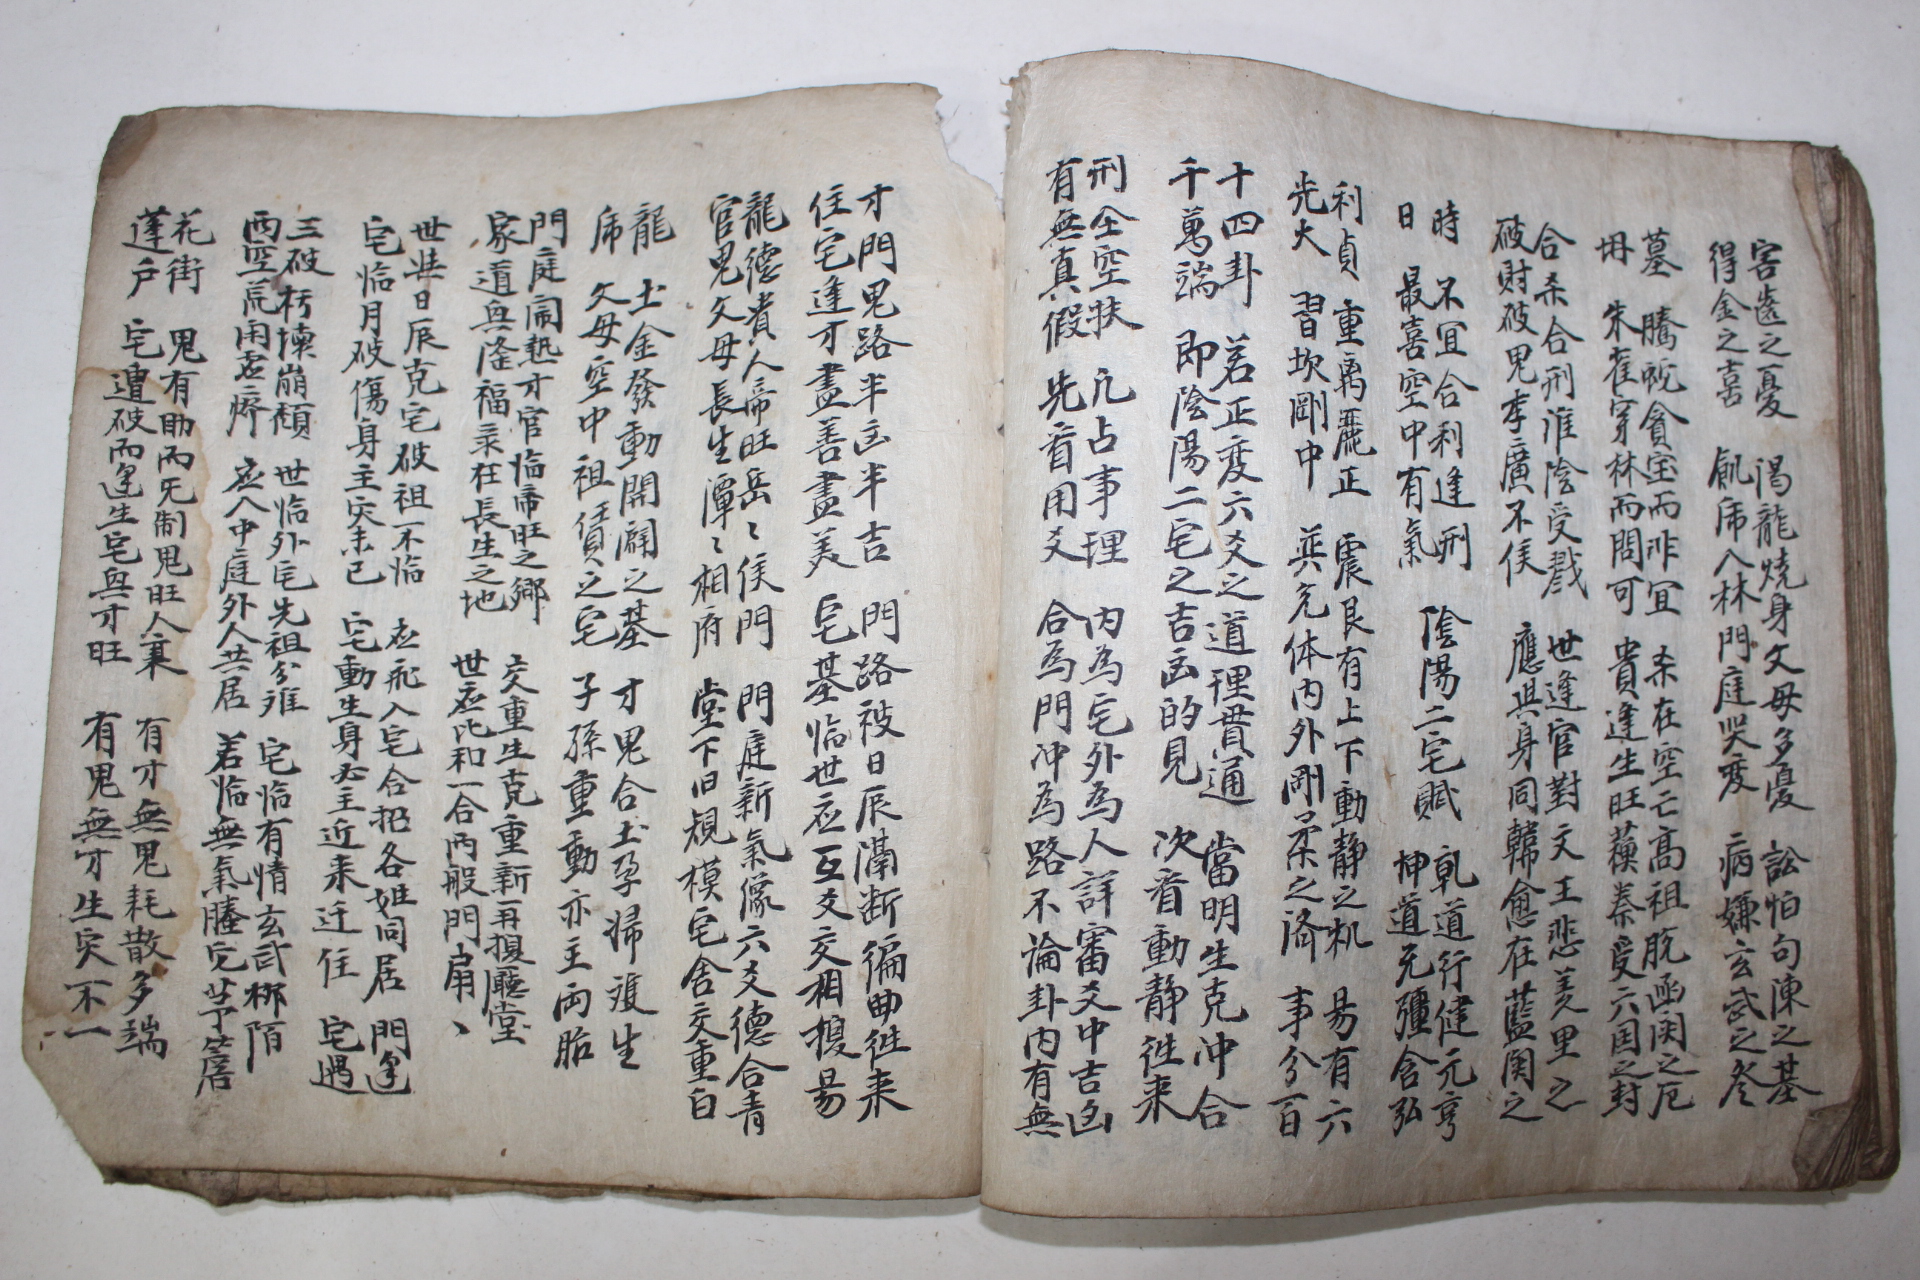 害遠之憂 渴龍燒身父母多憂 訟怕句陳之基
得金之喜 飢虎入林門庭哭变 病嫌玄武之冬
墓 騰蛇貪宝而非宜 杀在空亡高祖脱函関之厄
朱雀穿林而問可 貴逢生旺蘓秦受六国之封
合杀合刑淮陰受戮 世逢官對文王悲羑里之
破財破鬼李廣不侯 應與身同韓愈在藍関之
時 不宜合利逢刑
日 最喜空中有氣
陰陽二宅賦
乹道行健元亨
坤道无彊含弘
利貞 重离麗正 震艮有上下動静之机 易有六
光大 習坎剛中 巽兊体内外剛柔之济 事分百
十四卦 若正变六爻之道理貫通 當明生克冲合
千萬端 即陰陽二宅之吉凶的見 次看動静徃来
刑全空扶 凢占事理 内為宅外為人詳審爻中吉凶
有無真假 先看用爻 合為門冲為路不論卦内有無
才門鬼路半凶半吉 門路被日辰隔断徧曲徃来
住宅逢才盡善盡美 宅基临世应互爻交相換易
龍德貴人帝旺岳〻侯門 門庭新氣像六爻德合青
官鬼父母長生潭〻相府 堂下旧規模宅舍交重白
龍 土金發動開闢之基 才鬼合土孕婦漨生
乕 父母空中祖賃之宅 子孫重動亦主両胎
門庭閙热才官临帝旺之郷 交重生克重新再換廳堂
家道興隆福彔在長生之地 世应比和一合両般門扇
世並日辰克宅破祖不临 应飛入宅合招各姓同居 門逢
宅临月破傷身主灾未已 宅動生身必主近来迁住 宅遇
三破朽揀崩頹 世临外宅先祖分雉 宅临有情玄武梛陌
両空荒闲老瘠 应入中庭外人共居 若临無氣
花街 鬼有助而无制鬼旺人衰 有才無鬼耗散多端
蓬户 宅遭破而逢生宅興才旺 有鬼無才生灾不一